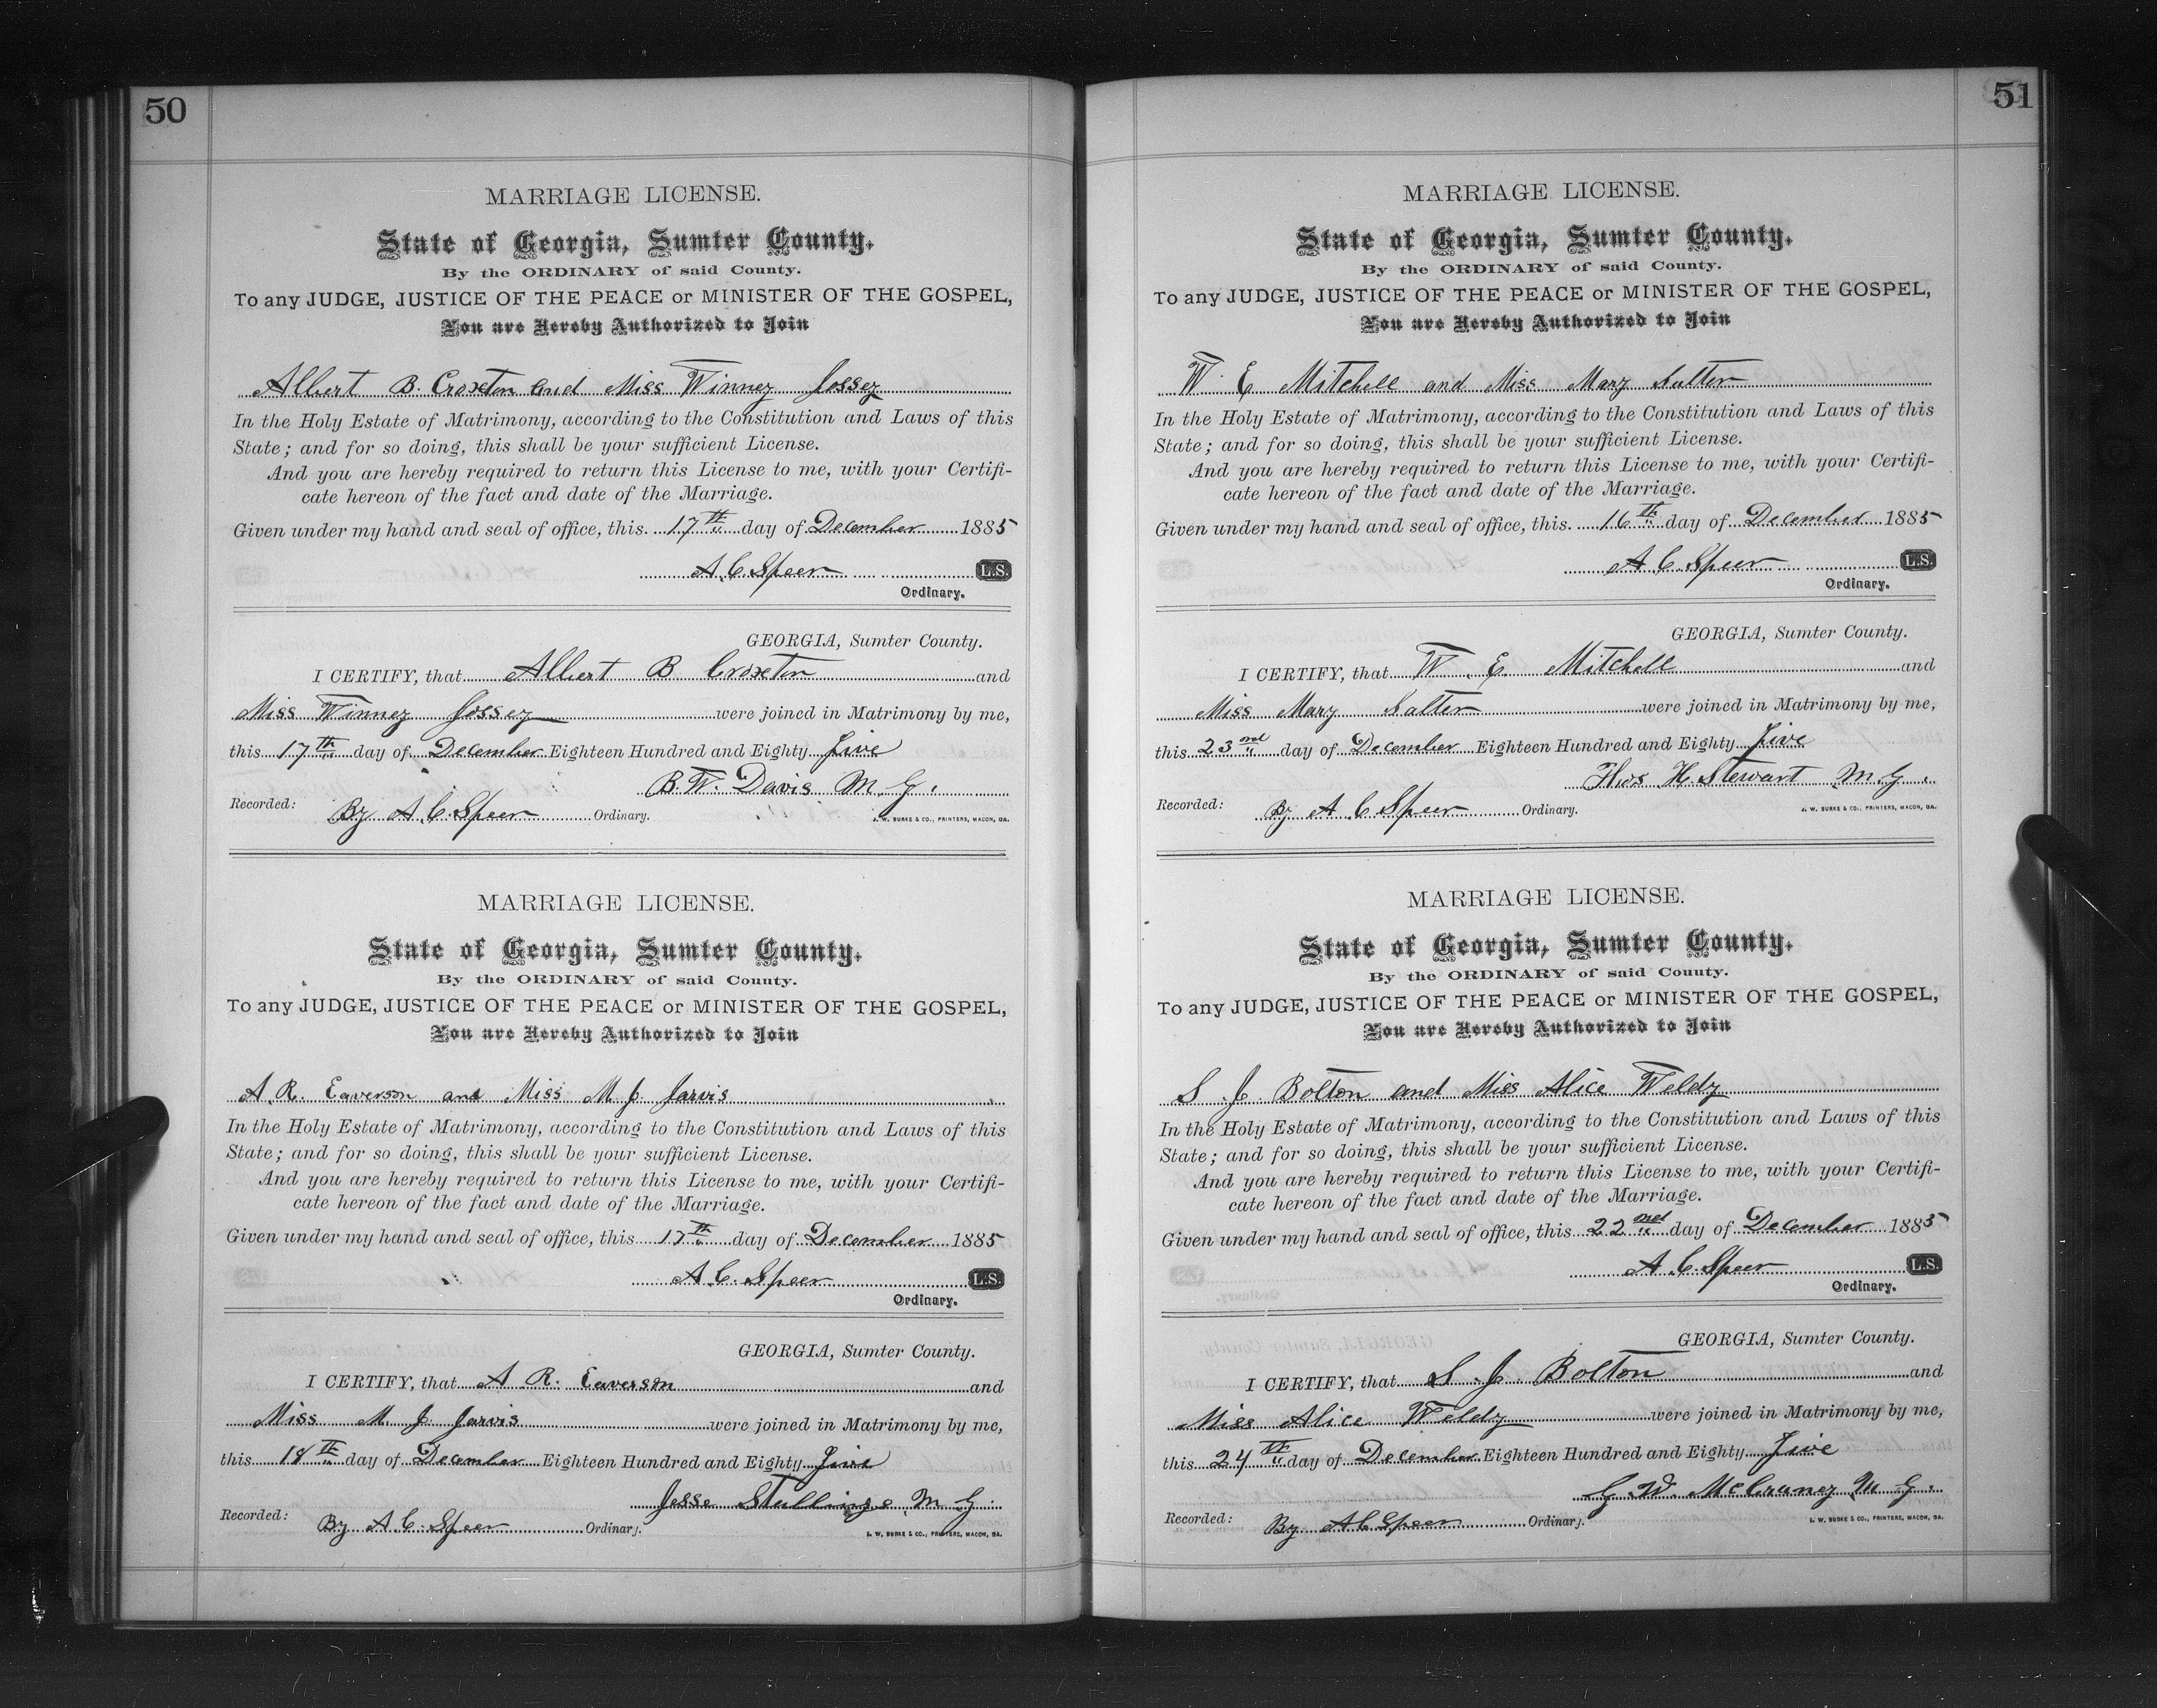 50
MARRIAGE LICENSE.
State of Georgia, Sumter County.
By the ORDINARY of said County.
To any JUDGE, JUSTICE OF THE PEACE or MINISTER OF THE GOSPEL,
You are Hereby Authorized to Join
Albert B. Croxton and Miss Winney Jossey
In the Holy Estate of Matrimony, according to the Constitution and Laws of this
State; and for so doing, this shall be your sufficient License.
And you are hereby required to return this License to me, with your Certifi-
cate hereon of the fact and date of the Marriage.
Given under my hand and seal of office, this 17th day of December 1885
A. C. Speer L.S.
Ordinary.
GEORGIA, Sumter County.
I CERTIFY, that Albert B Croxton and
Miss Winney Jossey were joined in Matrimony by me,
this 17th day of December Eighteen Hundred and Eighty Five
B. W. Davis M. G.
Recorded: By A. C. Speer Ordinary.
J. W. BURKE & CO., PRINTERS, MACON, GA.
MARRIAGE LICENSE.
State of Georgia, Sumter County.
By the ORDINARY of said County.
To any JUDGE, JUSTICE OF THE PEACE or MINISTER OF THE GOSPEL,
You are Hereby Authorized to Join
A. R. Eaverson and Miss M J Jarvis
In the Holy Estate of Matrimony, according to the Constitution and Laws of this
State; and for so doing, this shall be your sufficient License.
And you are hereby required to return this License to me, with your Certifi-
cate hereon of the fact and date of the Marriage.
Given under my hand and seal of office, this 17th day of December 1885
A. C. Speer L.S.
Ordinary.
GEORGIA, Sumter County.
I CERTIFY, that A R. Eaverson and
Miss M J Jarvis were joined in Matrimony by me,
this 18th day of December Eighteen Hundred and Eighty Five
Jesse Stallings M. G.
Recorded: By A C. Speer Ordinary.
J. W. BURKE & CO., PRINTERS, MACON, GA.
51
MARRIAGE LICENSE.
State of Georgia, Sumter County.
By the ORDINARY of said County.
To any JUDGE, JUSTICE OF THE PEACE or MINISTER OF THE GOSPEL,
You are Hereby Authorized to Join
W. E Mitchell and Miss Mary Salter
In the Holy Estate of Matrimony, according to the Constitution and Laws of this
State; and for so doing, this shall be your sufficient License.
And you are hereby required to return this License to me, with your Certifi-
cate hereon of the fact and date of the Marriage.
Given under my hand and seal of office, this 16th day of December 1885
A C. Speer L.S.
Ordinary.
GEORGIA, Sumter County.
I CERTIFY, that W. E. Mitchell and
Miss Mary Salter were joined in Matrimony by me,
this 23nd day of December Eighteen Hundred and Eighty Five
Thos H. Stewart M. G.
Recorded: By A C Speer Ordinary.
J. W. BURKE & CO., PRINTERS, MACON, GA.
MARRIAGE LICENSE.
State of Georgia, Sumter County.
By the ORDINARY of said County.
To any JUDGE, JUSTICE OF THE PEACE or MINISTER OF THE GOSPEL,
You are Hereby Authorized to Join
S. J. Bolton and Miss Alice Weldy
In the Holy Estate of Matrimony, according to the Constitution and Laws of this
State; and for so doing, this shall be your sufficient License.
And you are hereby required to return this License to me, with your Certifi-
cate hereon of the fact and date of the Marriage.
Given under my hand and seal of office, this 22nd day of December 1885
A. C. Speer L.S.
Ordinary.
GEORGIA, Sumter County.
I CERTIFY, that S. J. Bolton and
Miss Alice Weldy were joined in Matrimony by me,
this 24th day of December Eighteen Hundred and Eighty Five
G. W. McCruney M G.
Recorded: By A C Speer Ordinary.
J. W. BURKE & CO., PRINTERS, MACON, GA.